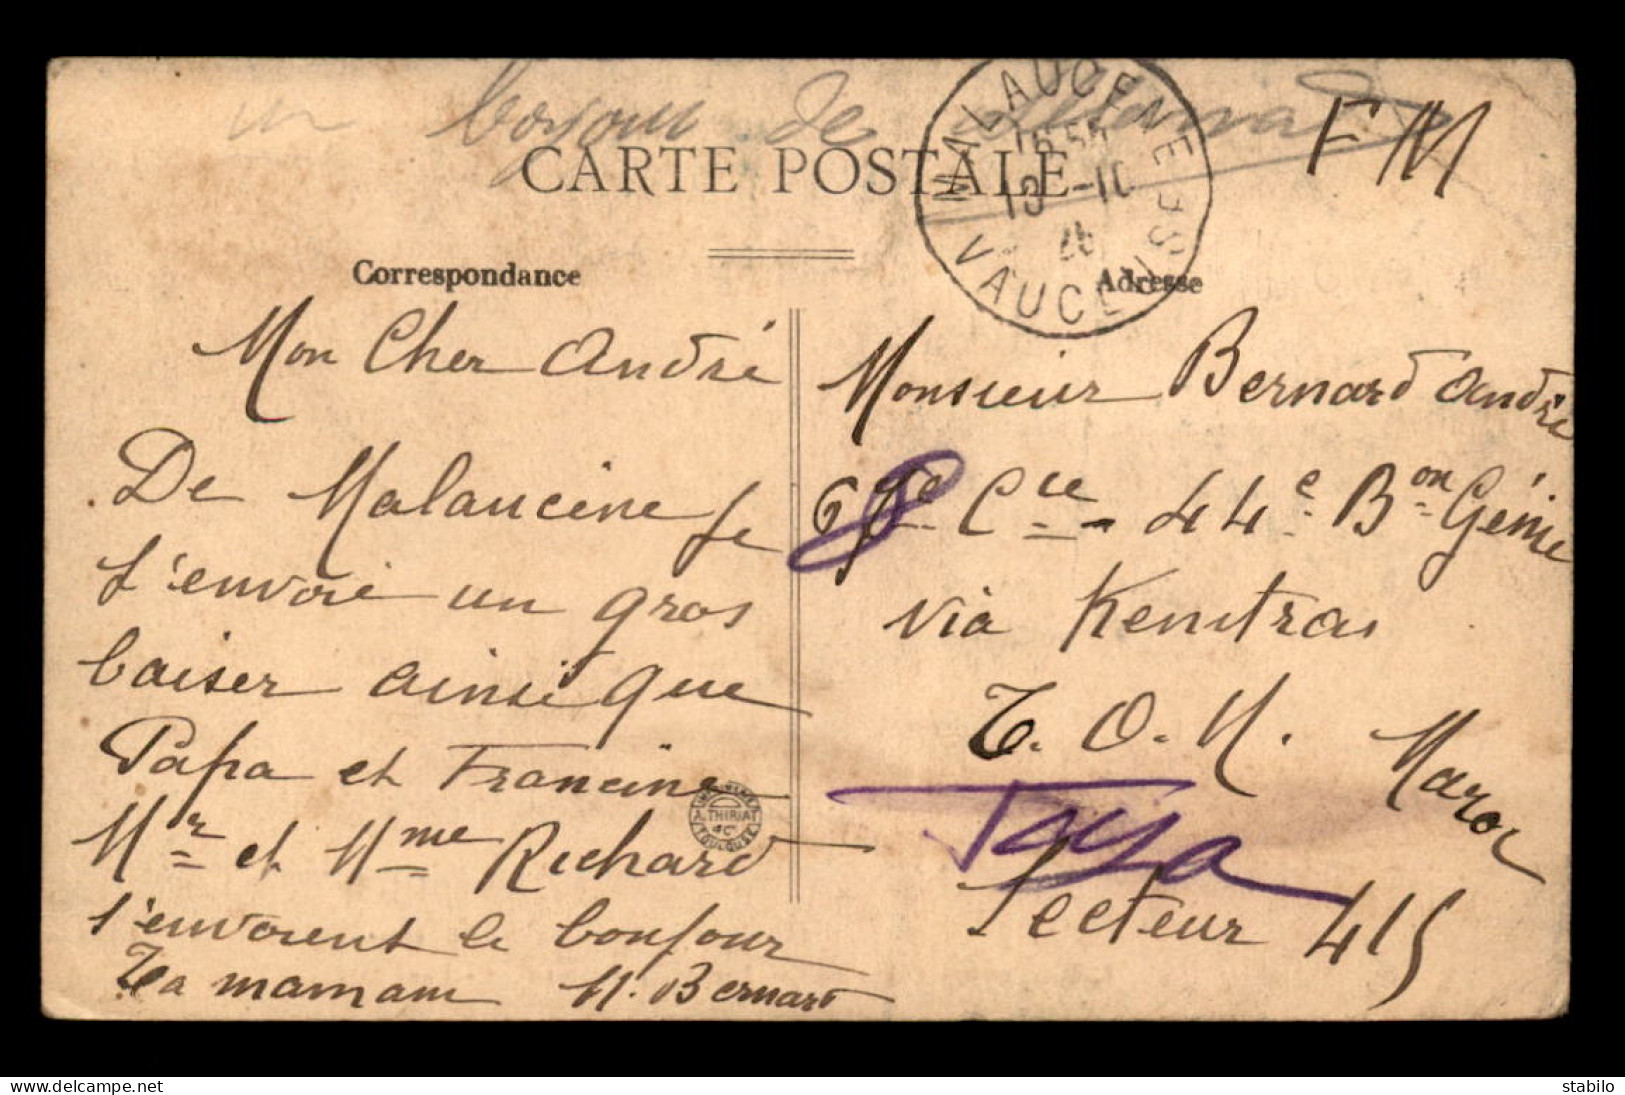 un bonjour de
CARTE POSTALE
FM
MALAUCENE
16 55
13 -10
26
VAUCLUSE
Correspondance
Adresse
Mon Cher André
De Malaucène Je
t'envoie un gros
baiser ainsi que
Papa et Francine
Mr et Mme Richard
t'envoient le bonjour
Ta maman M. Bernard
IMPRIMERIE
A. THIRIAT
& Cie
TOULOUSE
Monsieur Bernard André
Cie - 44e Bon Génie
8
via Kenitra
T. O. M. Maroc
Taza
Secteur 415
www.delcampe.net
stabilo